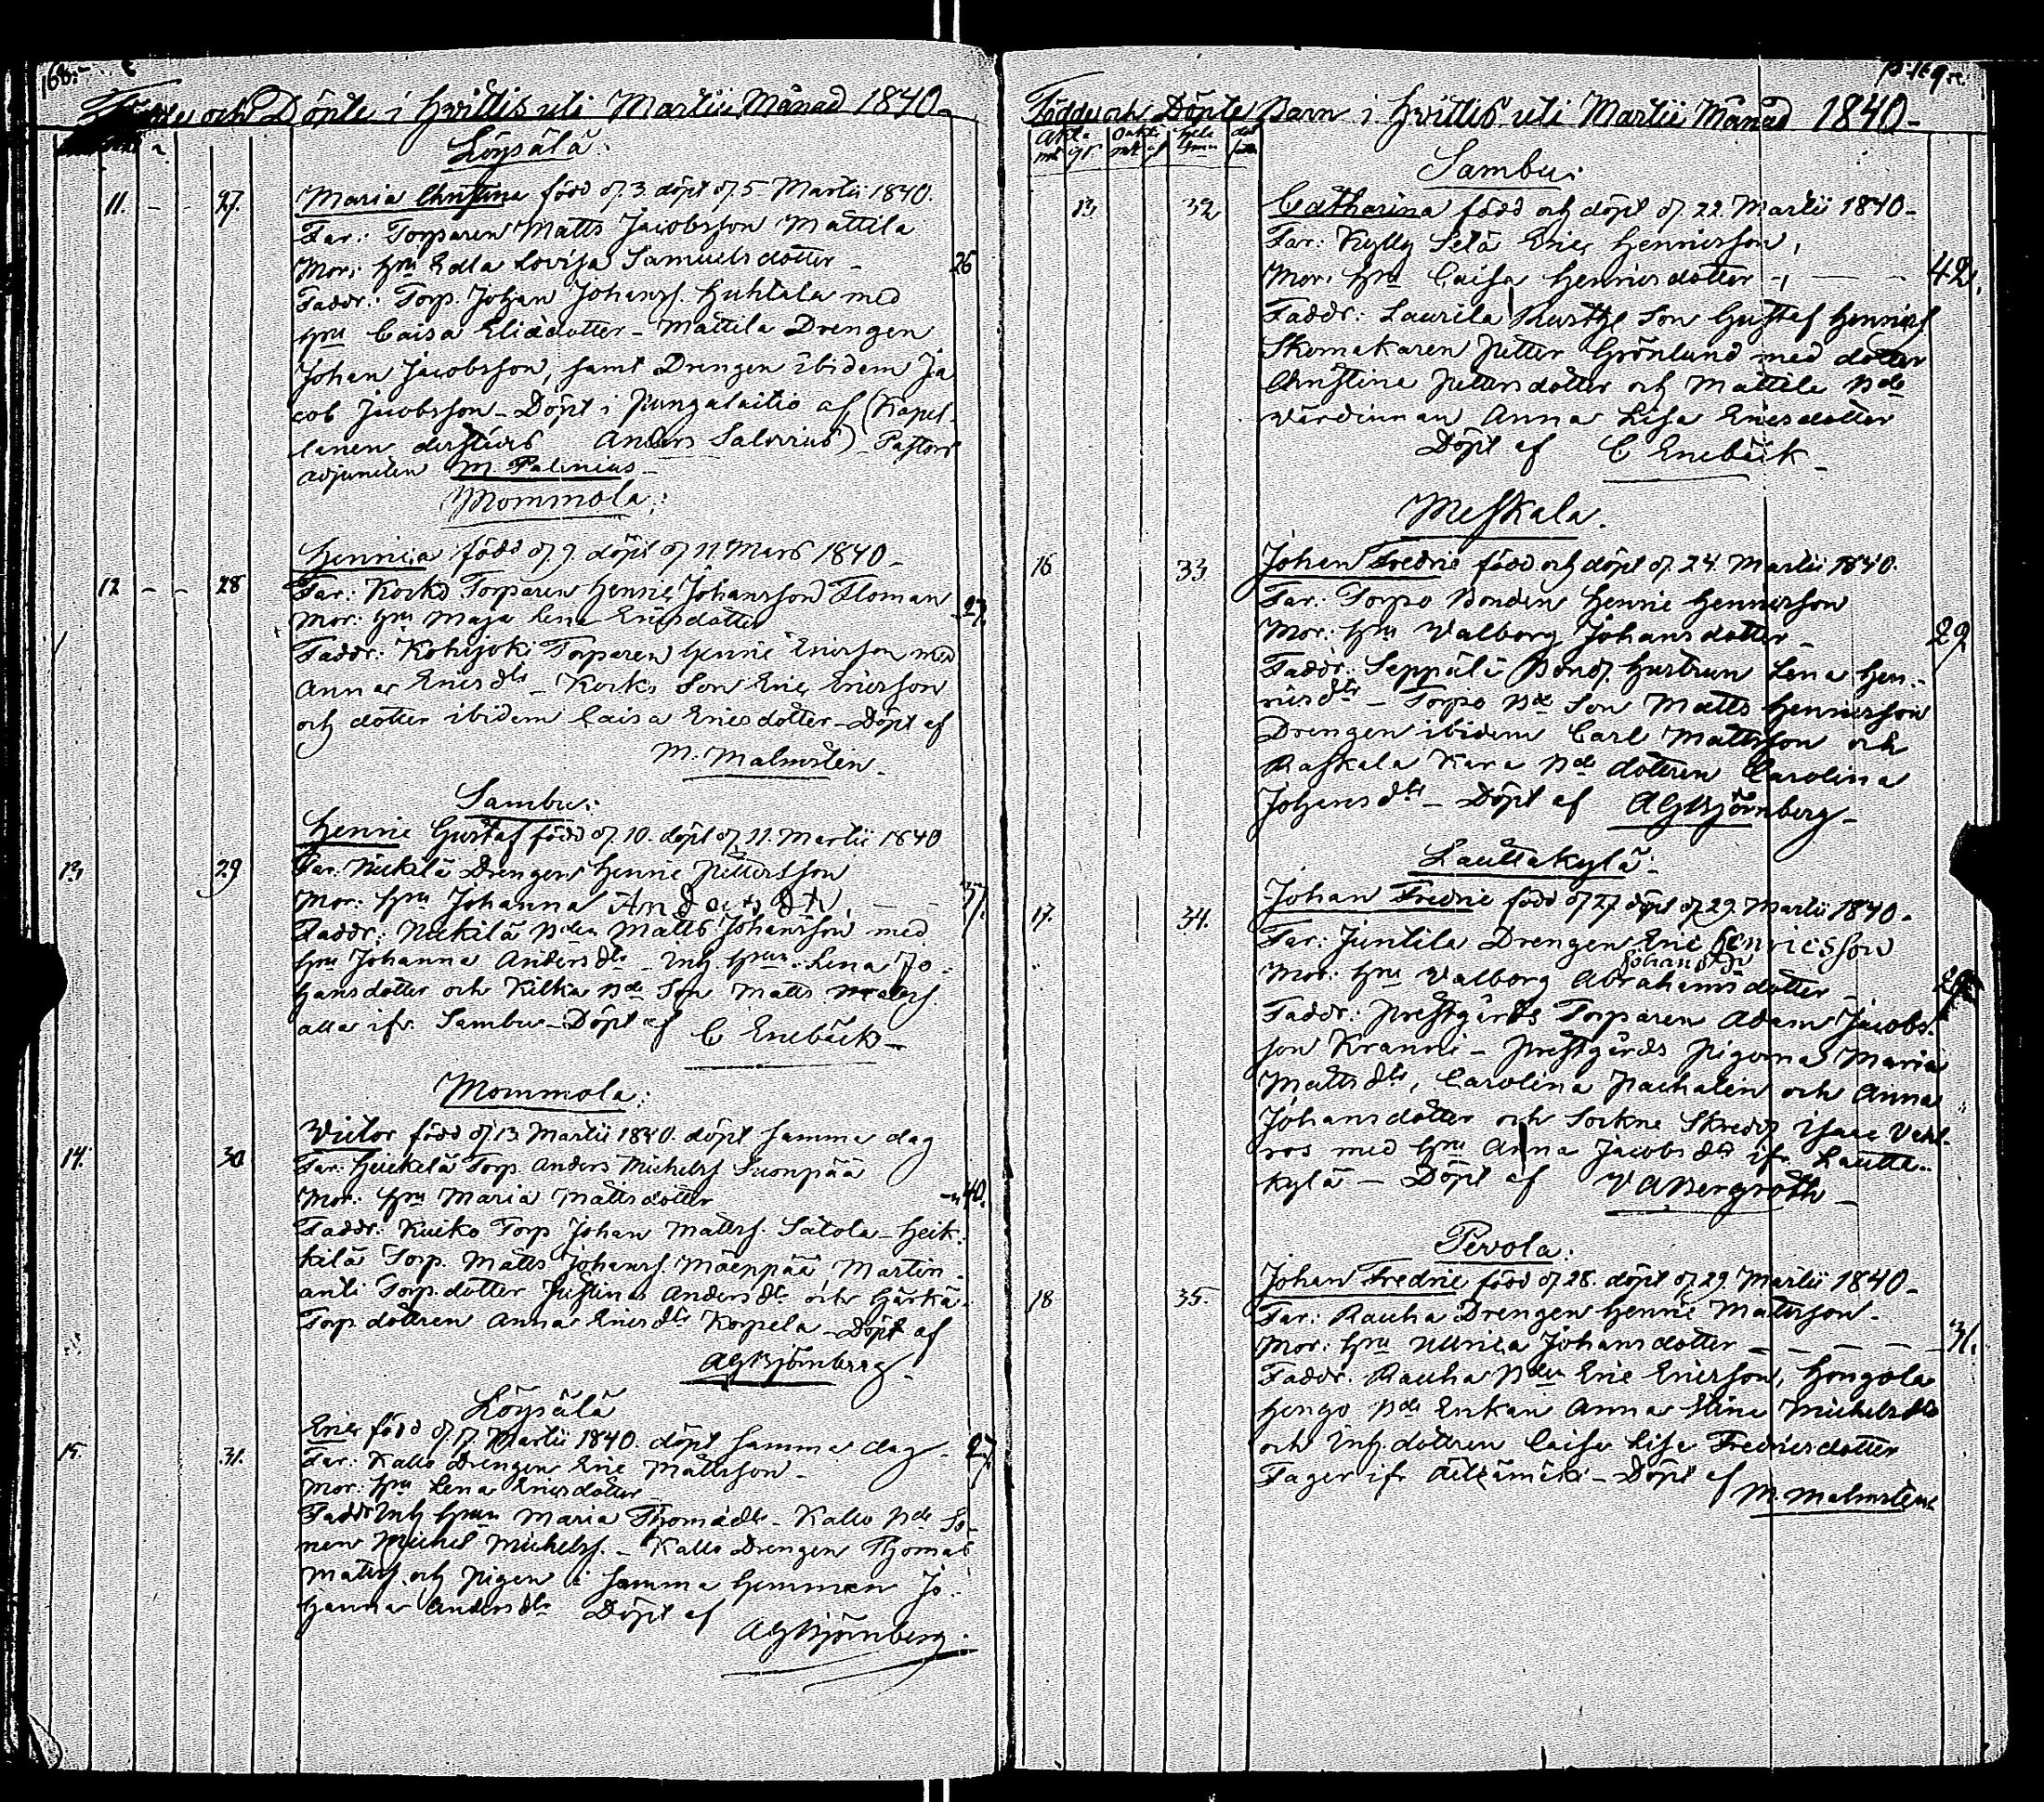 168.
Födde och Döpte i Hvittis uti Martii Månad 1840.
Löysälä:
11. - - 27. Maria Christina född d. 3 döpt d. 5 Martii 1840.
Far: Torparen Matts Jacobsson Mattila
Mor: Hru Edla Lovisa Samuelsdotter - 26
Faddr: Torp. Johan Johanss. Huhtala med
hru Caisa Eliædotter - Mattila Drengen
Johan Jacobsson, samt Drengen ibidem Ja
cob Jacobsson - Döpt i Pungalaitio af (Kapel-
lanen derstädes Anders Salovius) - Pastors
adjuncten M. Palinius -
Mommola:
12 - - 28 Henrica född d. 9. döpt d. 11. Mars 1840 -
Far: Korko Torparen Henric Johansson Floman
Mor: hru Maja Lena Ericsdotter 27.
Faddr: Kohijoki Torparen Henric Ericsson med
Anna Ericsdtr - Korko Son Eric Ericsson
och dotter ibidem Caisa Ericsdotter - Döpt af
M. Malmsten -
Sambu:
13 29 Henric Gustaf född d. 10. döpt d. 11. Martii 1840
Far: Nickilä Drengen Henric Pettersson
Mor: hru Johanna Andersdtr. - - 37.
Faddr: Nickilä Bden Matts Johansson med
hru Johanna Andersdtr - Inh. hrun Lena Jo-
hansdotter och Kilkka Bde Son Matts Matss.
alla ifr. Sambu - Döpt af C Enebäck -
Mommola:
14. 30 Victor född d. 13 Martii 1840. döpt samma dag
Far: Heickelä Torp. Anders Michelss Suonpää
Mor: hru Maria Mattsdotter - 40.
Faddr: Kuiko Torp Johan Mattss. Sätola - Heik-
kilä Torp. Matts Johanss. Mäenpää Martin
anti Torp. dotter Justina Andersdtr och Härkä-
Torp dottren Anna Ericsdtr Korpela - Döpt af
AGBjörnberg -
Löysälä
15. 31. Eric född d. 17 Martii 1840. döpt samma dag - 27.
Far: Kallo Drengen Eric Mattsson -
Mor: hru Lena Ericsdotter
Faddr Inh hrun Maria Thomædtr - Kallo Bde So-
nen Michel Michelss. - Kallo Drengen Thomas
Mattss. och Pigen i samma Hemman Jo-
hanna Andersdtr Döpt af
AGBjörnberg.
p. 169
Födde och Döpte Barn i Hvittis uti Martii Månad 1840 -
Sambu:
13 32 Catharina född och döpt d. 22. Martii 1840 -
Far: Kylly Setä Eric Henricsson,
Mor: hru Caisa Henricsdotter - 42.
Faddr: Laurila Rusth. Son Gustaf Henricss
Skomakaren Petter Grönlund med dotter
Christina Pettersdotter och Mattila Bde
värdinnan Anna Lisa Ericsdotter
Döpt af C Enebäck -
Meskala.
16 33. Johan Fredric född och döpt d. 24. Martii 1840.
Far: Torpo Bonden Henric Henricsson
Mor: hru Valborg Johansdotter - 29
Faddr: Seppälä Bond. hustrun Lena Hen-
ricsdtr - Torpo Bde Son Matts Henricsson
Drengen ibidem Carl Mattsson och
Raskala Kara Bde dottren Carolina
Johansdtr - Döpt af AGBjörnberg -
Lauttakylä:
17. 34. Johan Fredric född d. 27 döpt d. 29. Martii 1840 -
Far: Juntila Drengen Eric Henricsson
Johansdtr
Mor: hru Valborg Abrahamsdotter 29
Faddr: Prestgårds Torparen Adam Jacobs-
son Kranni - Prestgårds Pigorna Maria
Mattsdtr, Carolina Pachalin och Anna
Johansdotter och Sockne Skredd. Isaac Vehl-
ros med hru Anna Jacobsdtr ifr. Lautta-
kylä - Döpt af VABergroth -
Pevola:
18 35. Johan Fredric född d. 28. döpt d. 29 Martii 1840 -
Far: Rauha Drengen Henric Mattsson -
Mor: hru Ulrica Johansdotter - - - - 31.
Faddr: Rauha Bden Eric Ericsson, Hongola
Hengo Bde Enkan Anna Stina Michelsdtr
och Inh. dottren Caisa Lisa Fredricsdotter
Fager ifr Äitzämäki - Döpt af
M. Malmsten